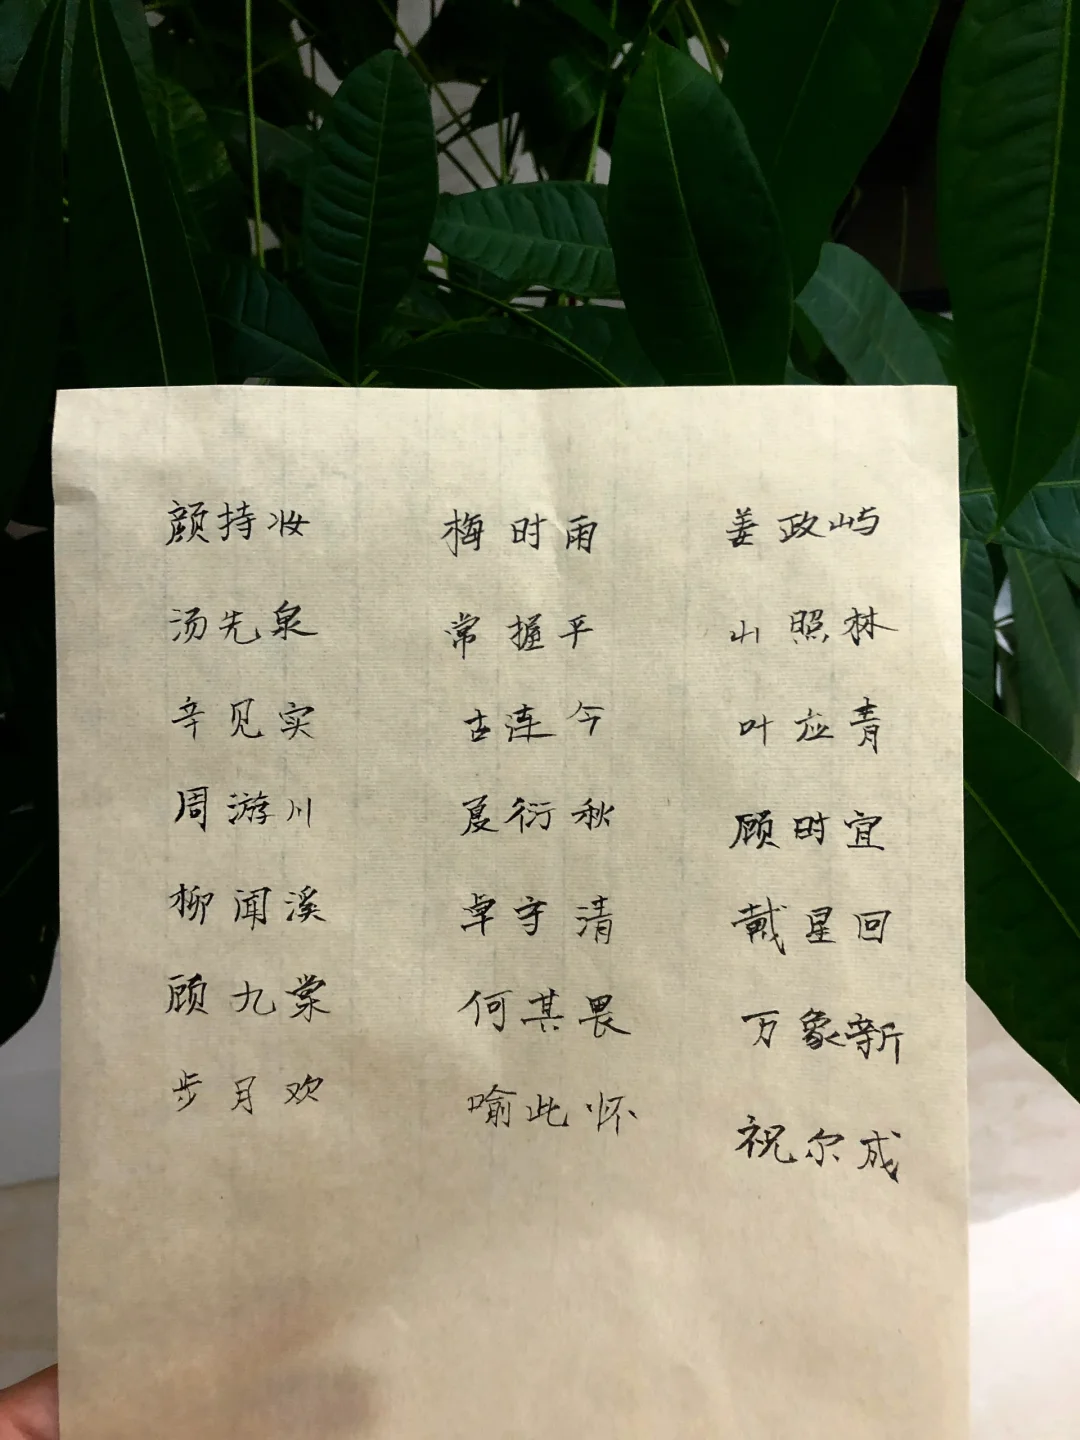 颜持妆 梅时雨 姜政屿
汤先泉 常握平 山照林
辛见实 古连今 叶应青
周游川 夏衍秋 顾时宜
柳闻溪 卓守清 戴星回
顾九棠 何其畏 万象新
步月欢 喻此怀 祝尔成